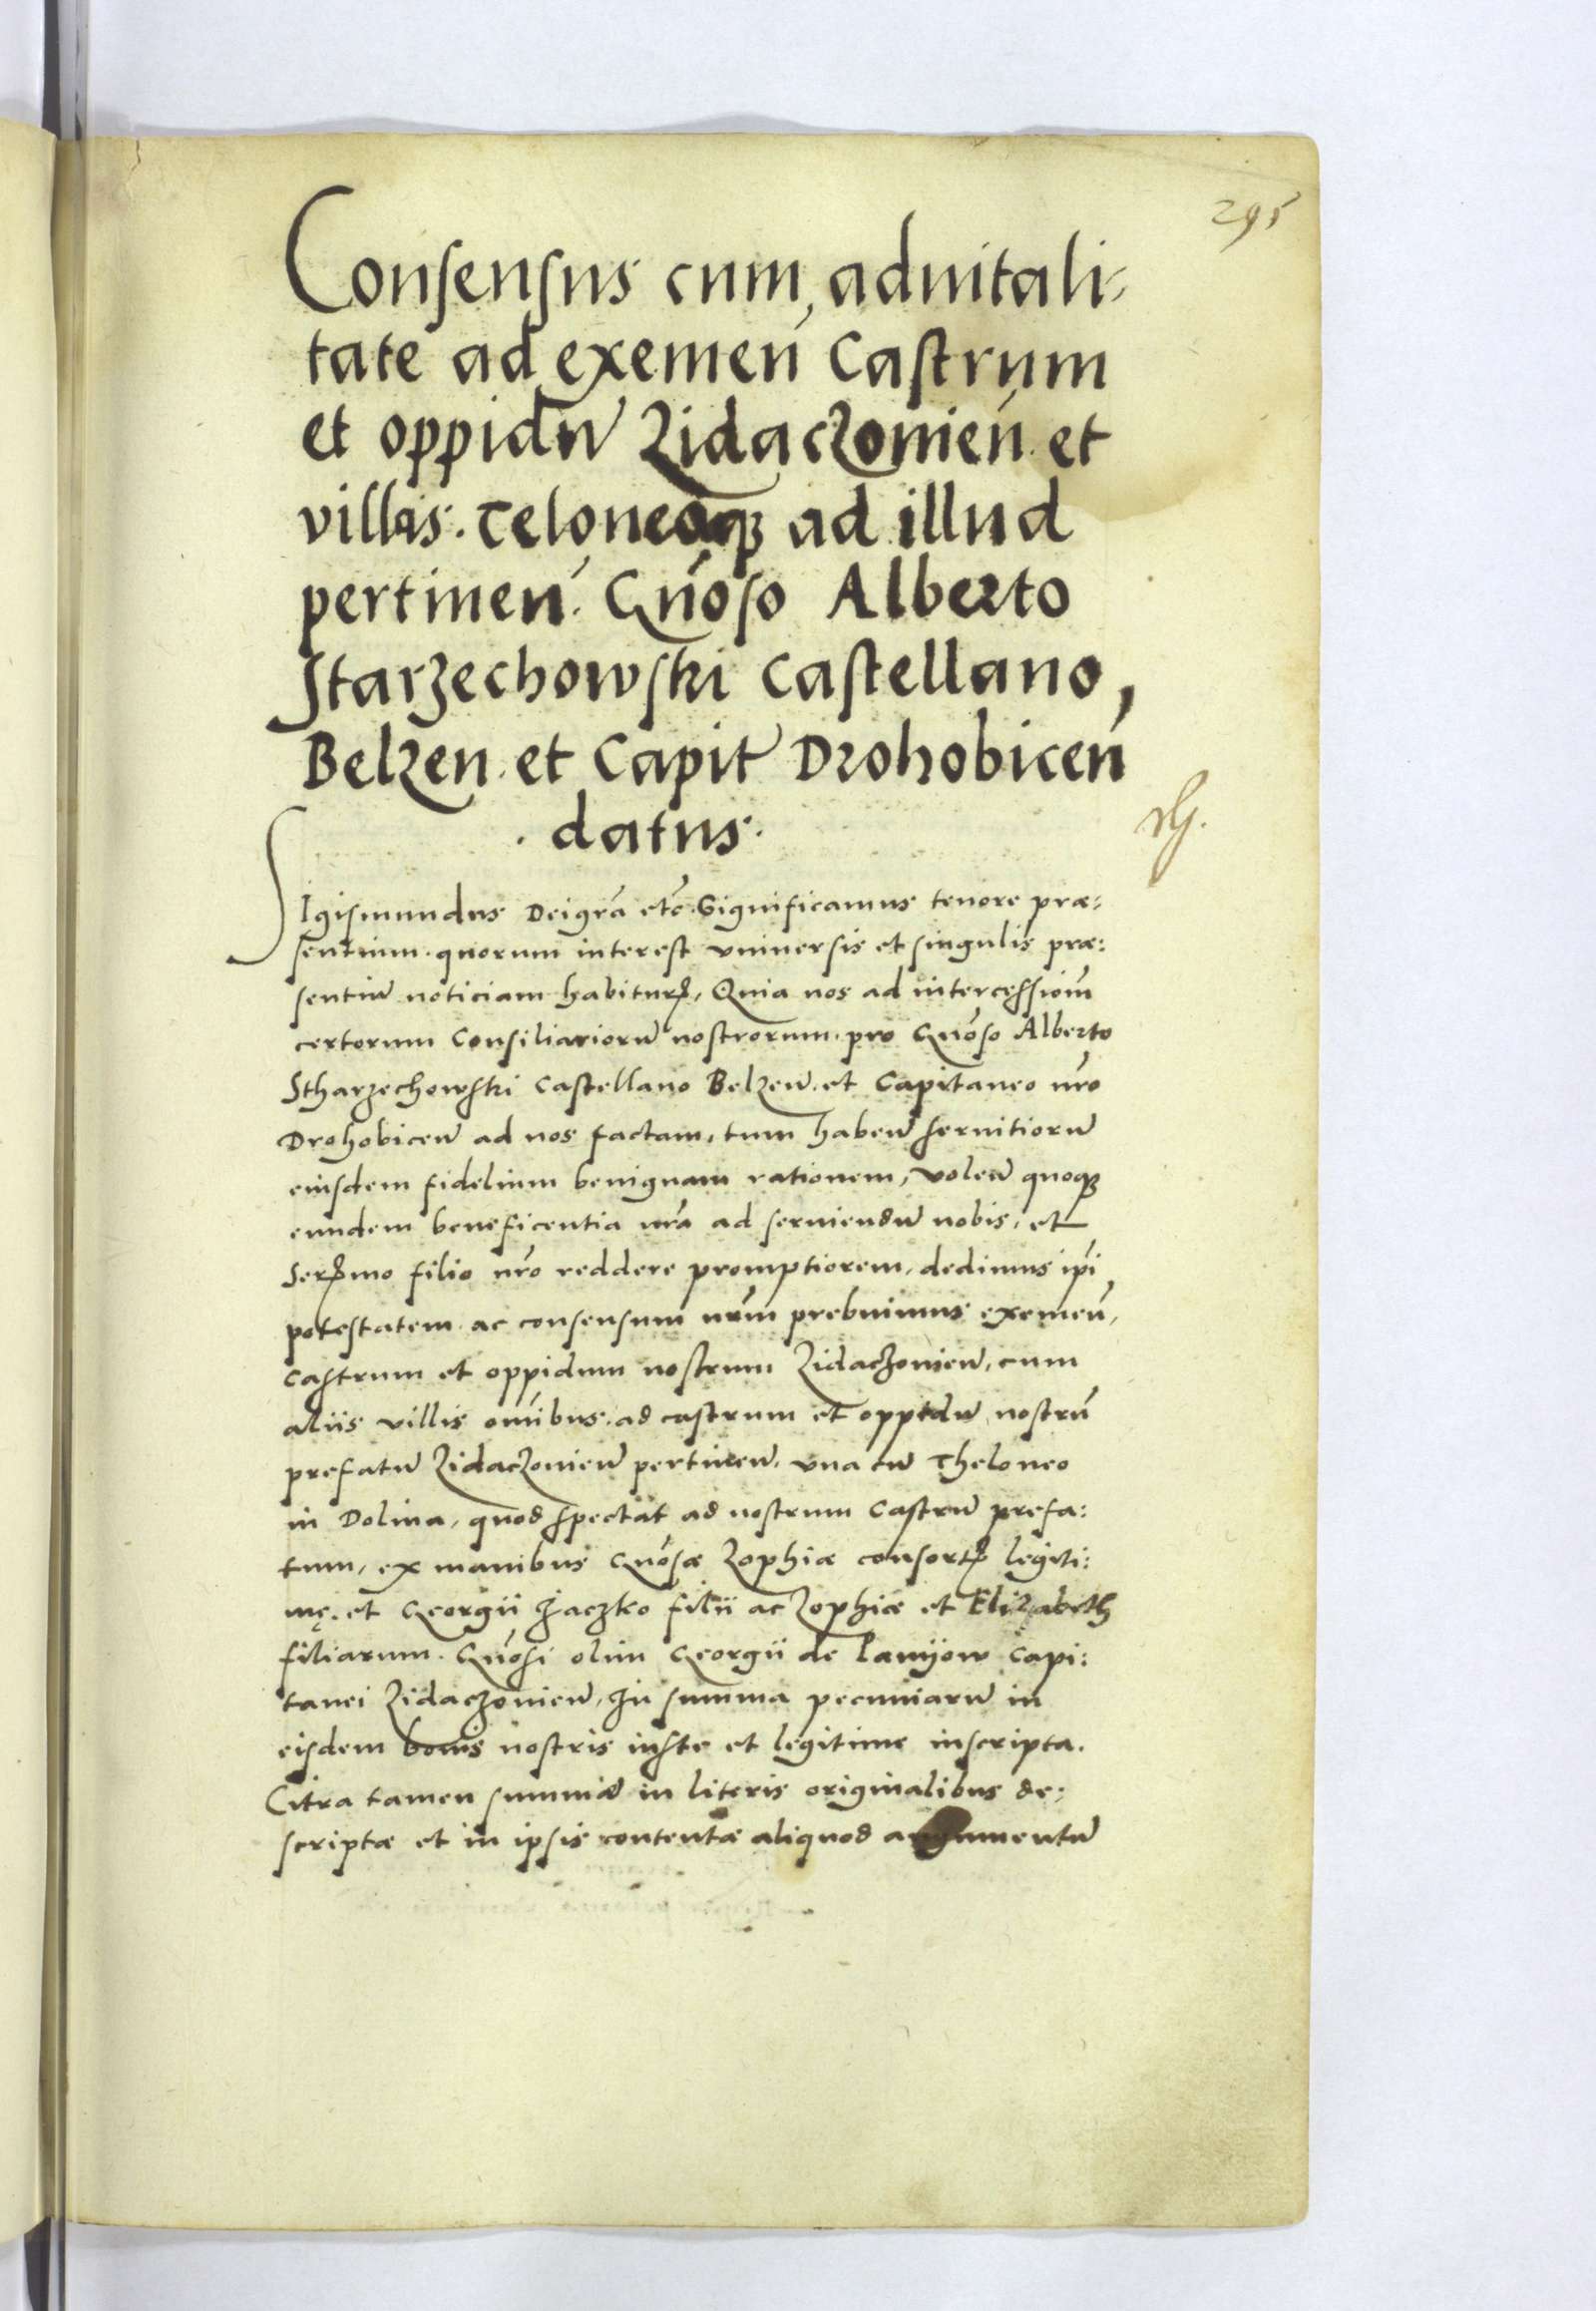 295
Consensus cum aduitali-
tate ad exemen̄ Castrum
et oppidū Zidaczouien̄. et
villas. Teloneaqꝫ ad illud
pertinen̄. Gn̄oso Alberto
Starzechowski Castellano,
Belzen. et Capit̄ Drohobicen̄
. datus.
SIgismundus Dei gr̄a etc̄. Significamus tenore præ:
sentium. quorum interest vniuersis et singulis præ:
sentiū noticiam habiturꝭ, Quia nos ad intercessiōm
certorum Consiliariorū nostrorum. pro Gn̄oso Alberto
Stharzechowski Castellano Belzen̄. et Capitaneo nr̄o
Drohobicen̄ ad nos factam, tum haben̄ seruitiorū
eiusdem fidelium benignam rationem, volen̄ quoqꝫ
eundem beneficentia nr̄a ad seruiendū nobis, et
Serꝭmo filio nr̄o reddere promptiorem, dedimus ip̄i
potestatem ac consensum nr̄m prebuimus exemen̄,
castrum et oppidum nostrum Zidaczouien̄, cum
aliis villis om̄ibus. ad castrum et oppidū nostrū
prefatū Zidaczouien̄ pertinen̄. vna cū Theloneo
in Dolina, quod spectat ad nostrum Castrū prefa:
tum, ex manibus Gn̄osæ Zophiæ consortꝭ legiti:
mę. et Georgii Jaczko filii ac Zophiæ et Elizabeth
filiarum. Gn̄osi olim Georgii de Capi:
tanei Zidaczouien̄, In summa pecuniarū in
eisdem bonis nostris iuste et legitime inscripta.
Citra tamen summæ in literis originalibus de:
scriptæ et in ipsis contentæ aliquod augumentū